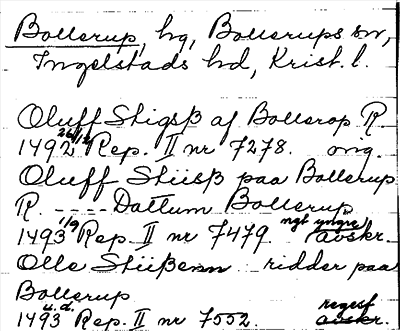 Bollerup, hg, Bollerups sn,
Ingelstads hd, Krist. l.
Oluff Stigsß af Bollerop R.
1492 26/12 Rep. II nr 7278. orig.
Oluff Stiisß paa Bollerup
R. ---- Dattum Bollerup
1493 1/9 Rep. II nr 7479. ngt yngre avskr.
Olle Stiißenn ridder paa
Bollerup
1493 u.d. Rep. II nr 7552. regest avskr.